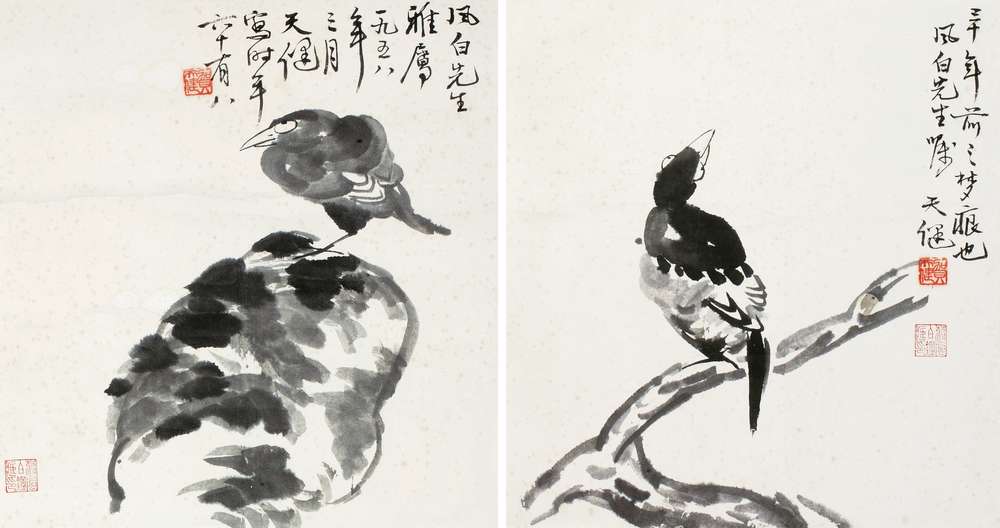 风白先生
雅属
一九五八
年
三月
天健
寫时年
六十有八
三十年前之梦痕也
风白先生嘱 天健